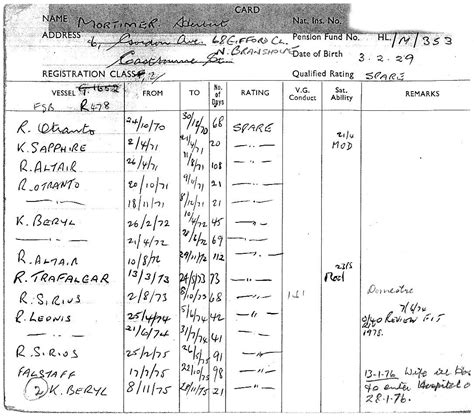 CARD
NAME MORTIMER Herbert Nat. Ins. No.
ADDRESS 6, Gordon Ave 68 GIFFORD CL. Pension Fund No. HL/M/353
N. BRANSHOLME Date of Birth 3.2.29
REGISTRATION CLASS Qualified Rating SPARE
VESSEL FROM TO No. of Days RATING V.G. Conduct Sat. Ability REMARKS
R478
R. Otranto 24/10/70 30/12/70 68 SPARE
K. SAPPHIRE 2/4/71 21/4/71 20 —"— 21/4 MOD
R. ALTAIR 26/4/71 11/8/71 108 —"—
R. OTRANTO 20/10/71 9/11/71 21 —"—
—"— 18/11/71 8/12/71 21 —"—
K. BERYL 26/2/72 10/4/72 45 —"—
—"— 21/4/72 28/6/72 69 —"—
R. ALTAIR 10/8/72 29/11/72 112 —"—
R. TRAFALGAR 13/3/73 24/5/73 73 —"— 23/5
R. SIRIUS 2/8/73 8/10/73 68 —"— Domestic
R. LEONIS 25/4/74 5/6/74 42 —"— 7/6/74
—"— 21/6/74 31/7/74 41 —"— REVIEW FIT
1975.
R. SIRIUS 25/2/75 26/5/75 91 —"—
FALSTAFF 17/7/75 22/10/75 98 —"— 13-1-76 Wife ill
2 K. BERYL 8/11/75 28/11/75 21 —"— enter Hospital
28-1-76.